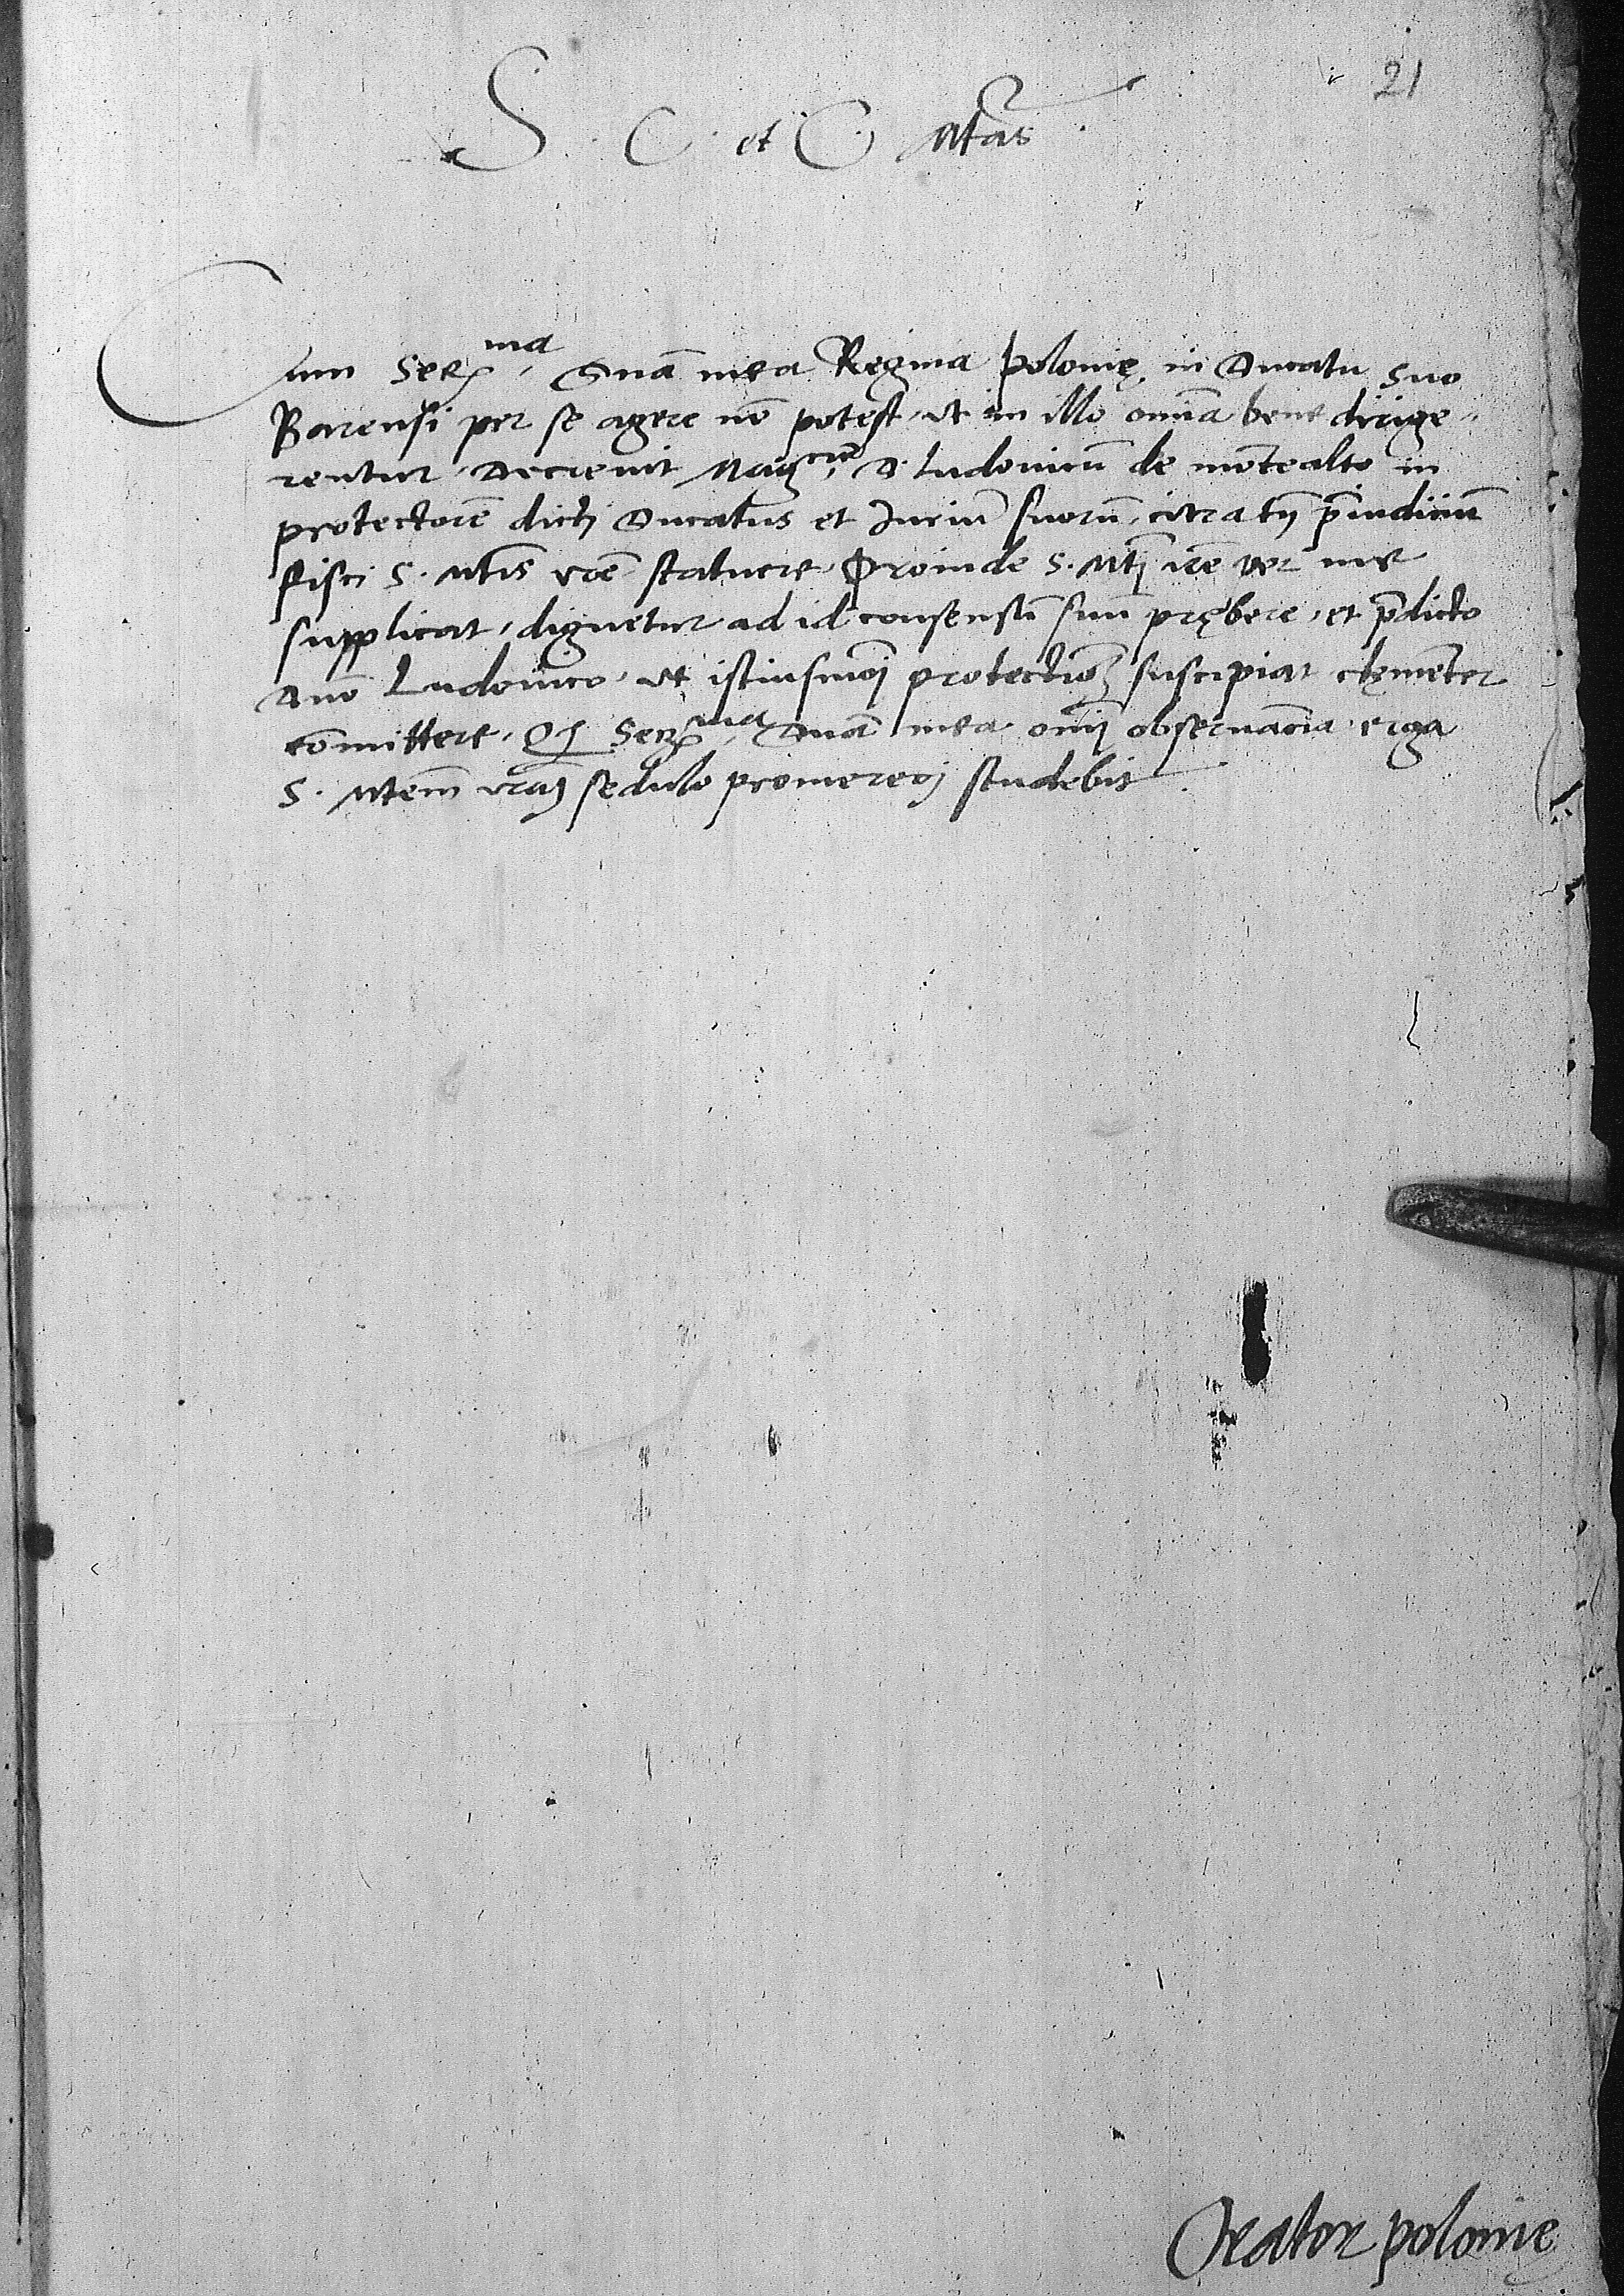 21
S. C. et C. Mtas.
Cum Ser.ma Dna mea Regina polonię in Ducatu suo
Barensi per se agere nō potest, vt in illo omnia bene dirige-
rentur, Decrevit Mag.cum D. Ludovicū de montealto in
protectorē dicti Ducatus et Juriū suorū, citra tn̄ p̄iudiciū
fisci S. Mtis vrē statuere. Proinde S. Mti vrē per me
supplicat, dignetur ad id consensū suū prębere, et p̄dicto
Dno Ludovico, vt istiusmōi protectionē suscipiat clęmēter
cōmittere. Qd Ser.ma Dna mea omni observācia erga
S. Mtem vrā sedulo promereri studebit.
Orator polonie